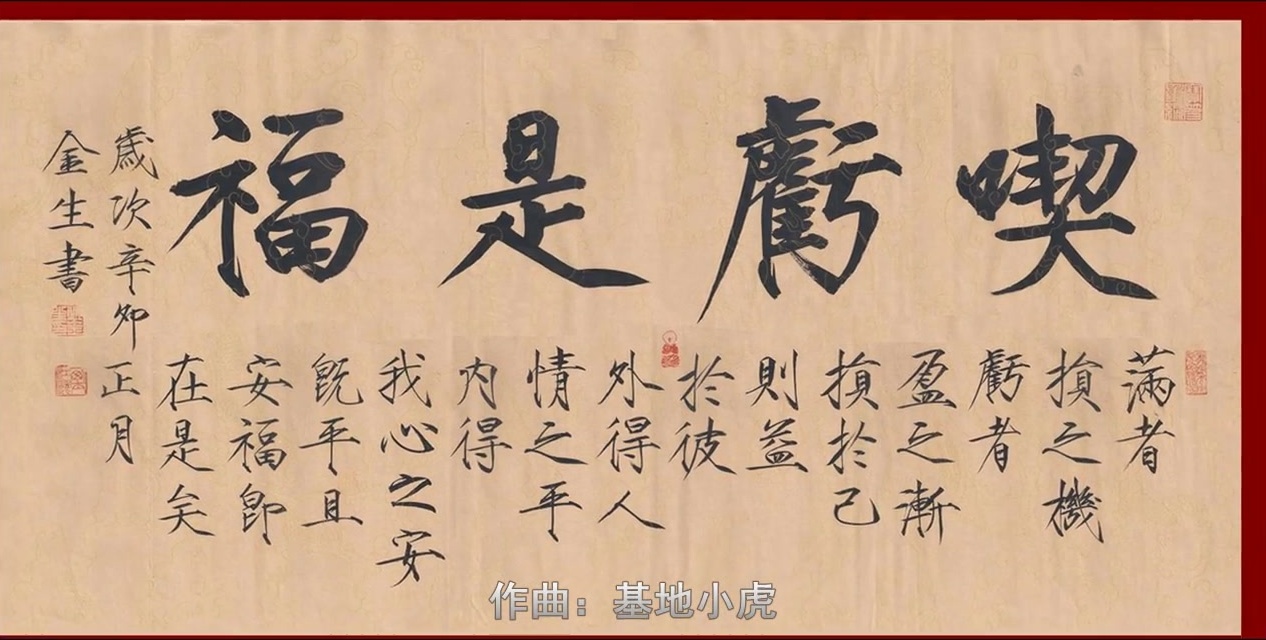 喫虧是福
滿者
損之機
虧者
盈之漸
損於己
則益
於彼
外得人
情之平
内得
我心之安
既平且
安福即
在是矣
歲次辛卯正月
金生書
作曲：基地小虎